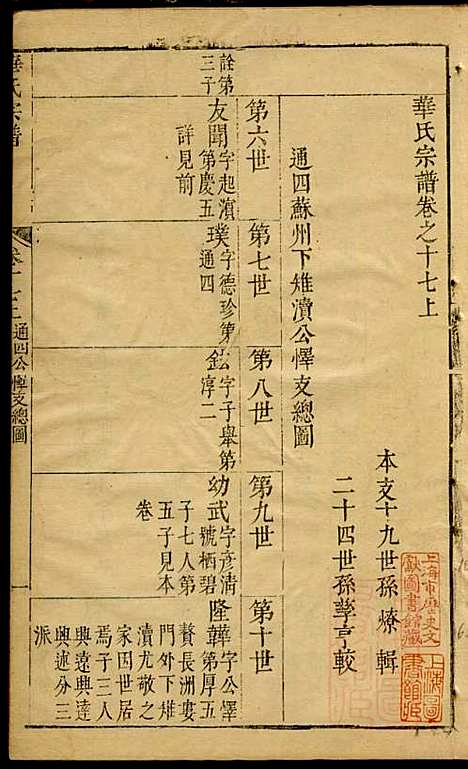 華氏宗譜卷之十七上
本支十九世孫燎輯
二十四世孫孳亨較
通四蘇州下雉瀆公懌支總圖
第六世
第七世
第八世
第九世
第十世
詮第
三子
友聞字起濵
第慶五
詳見前
璞字德珍第
通四
鉉字子舉第
淳二
幼武字彦清
號栖碧
子七人第
五子見本
卷
隆韡字公懌
第厚五
贅長洲婁
門外下雉
瀆尤敬之
家因世居
焉子三人
興遠興達
興述分三
派
華氏宗譜
通四公懌支總圖
上海市歷史文
獻圖書館藏
上海圖
書館藏